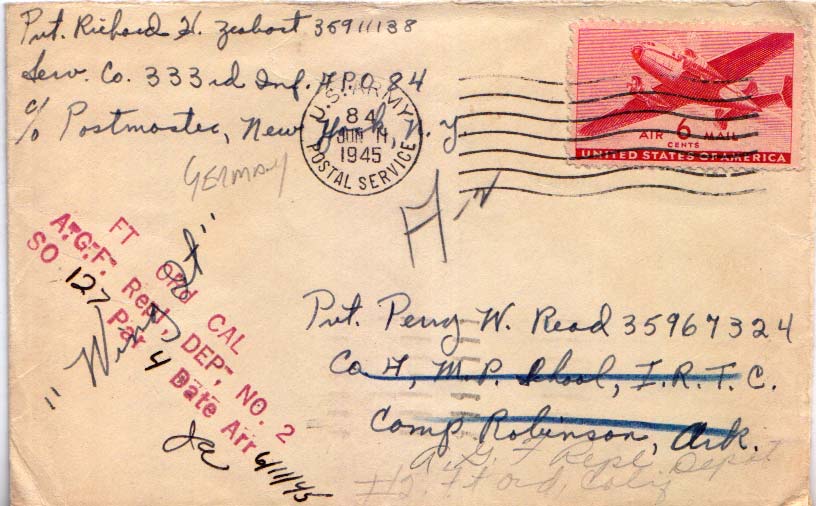 Pvt. Richard H. 35911138
Serv. Co. 333rd Inf. A.P.O. 84
c/o Postmaster, New York, N.Y.
U.S. ARMY
84
JUN 11
1945
POSTAL SERVICE
AIR 6 MAIL
CENTS
UNITED STATES OF AMERICA
GERMANY
FT Ord CAL
A.G.F. Repl, DEP, NO. 2
SO 127 Par 4 Date Arr 6/11/45
Pvt. Perry W. Read 35967324
Co , M.P. School, I.R.T.C.
Camp Robinson, Ark.
A.G.F Repl Depot
#2. Ft Ord, Calif